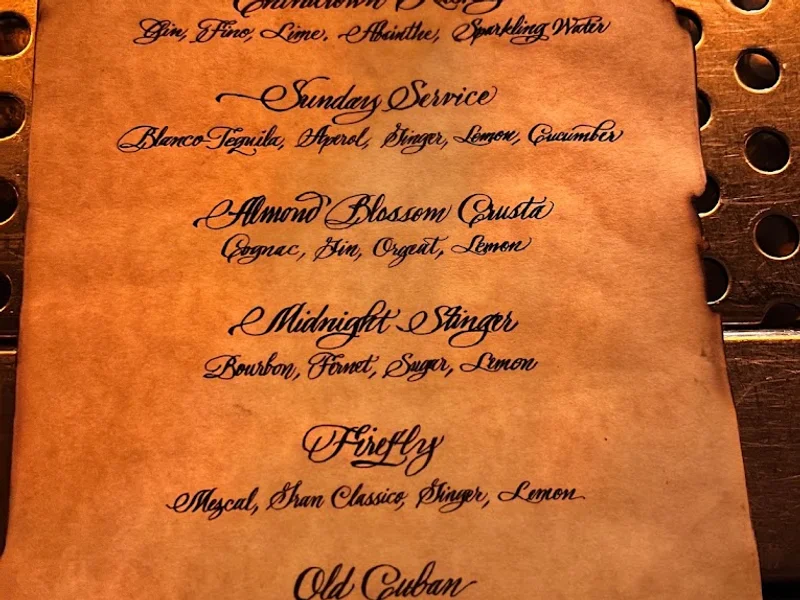 Gin, Fino, Lime, Absinthe, Sparkling Water
Sunday Service
Blanco Tequila, Aperol, Ginger, Lemon, Cucumber
Almond Blossom Crusta
Cognac, Gin, Orgeat, Lemon
Midnight Stinger
Bourbon, Fernet, Sugar, Lemon
Firefly
Mezcal, Gran Classico, Ginger, Lemon
Old Cuban